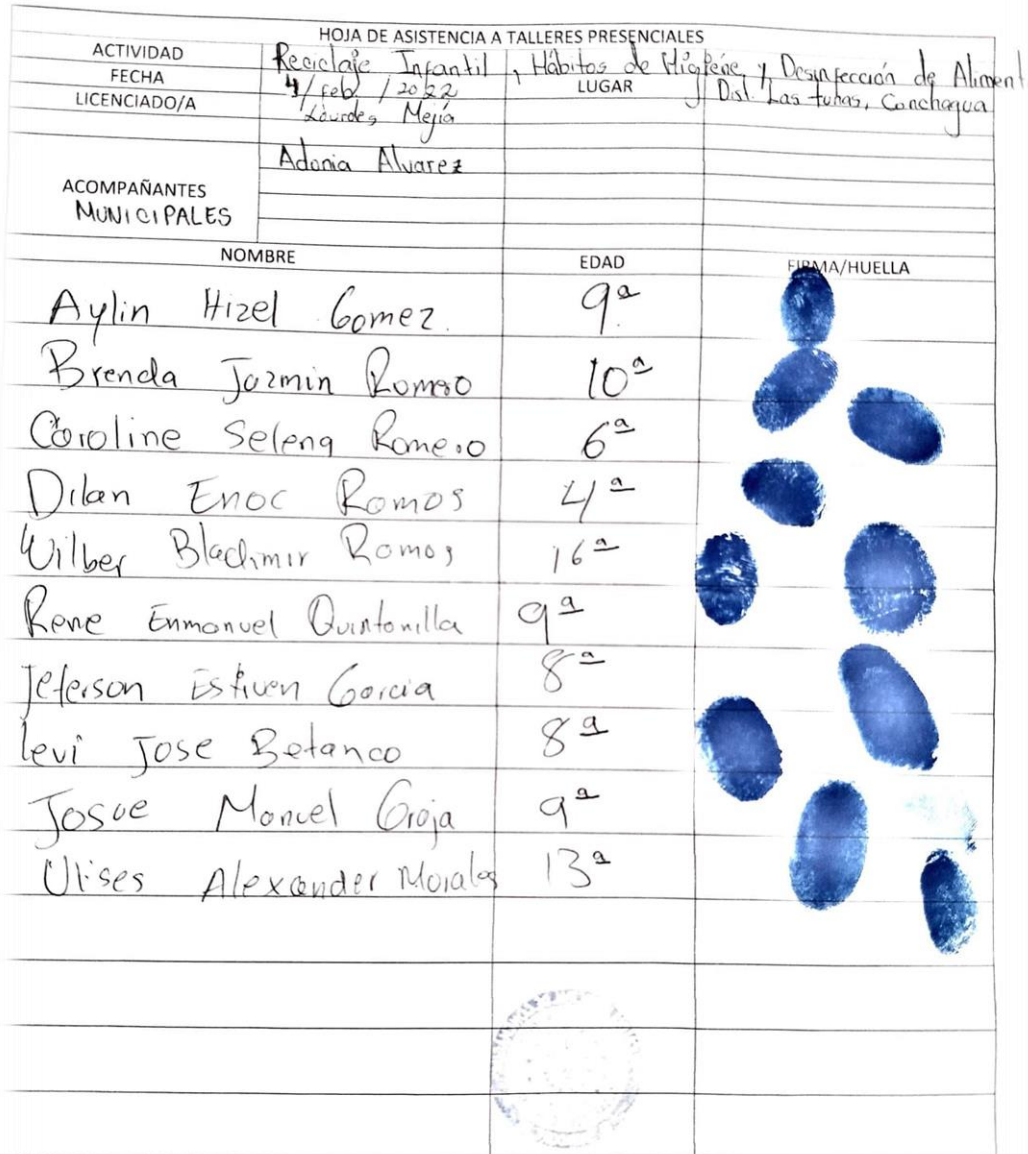 HOJA DE ASISTENCIA A TALLERES PRESENCIALES
ACTIVIDAD Reciclaje Infantil, Hábitos de Higiene, y Desinfección de Aliment
FECHA 4/feb/2022 LUGAR Dist. Las tunas, Conchagua
LICENCIADO/A Lourdes Mejía
Adonia Alvarez
ACOMPAÑANTES
MUNICIPALES
NOMBRE EDAD FIRMA/HUELLA
Aylin Hizel Gomez. 9ª
Brenda Jazmin Romero 10ª
Caroline Selena Romero 6ª
Dilan Enoc Ramos 4ª
Wilber Bladimir Ramos 16ª
Rene Enmanuel Quintanilla 9ª
Jeferson Estiven Garcia 8ª
levi Jose Betanco 8ª
Josue Manuel 9ª
Ulises Alexander Morales 13ª